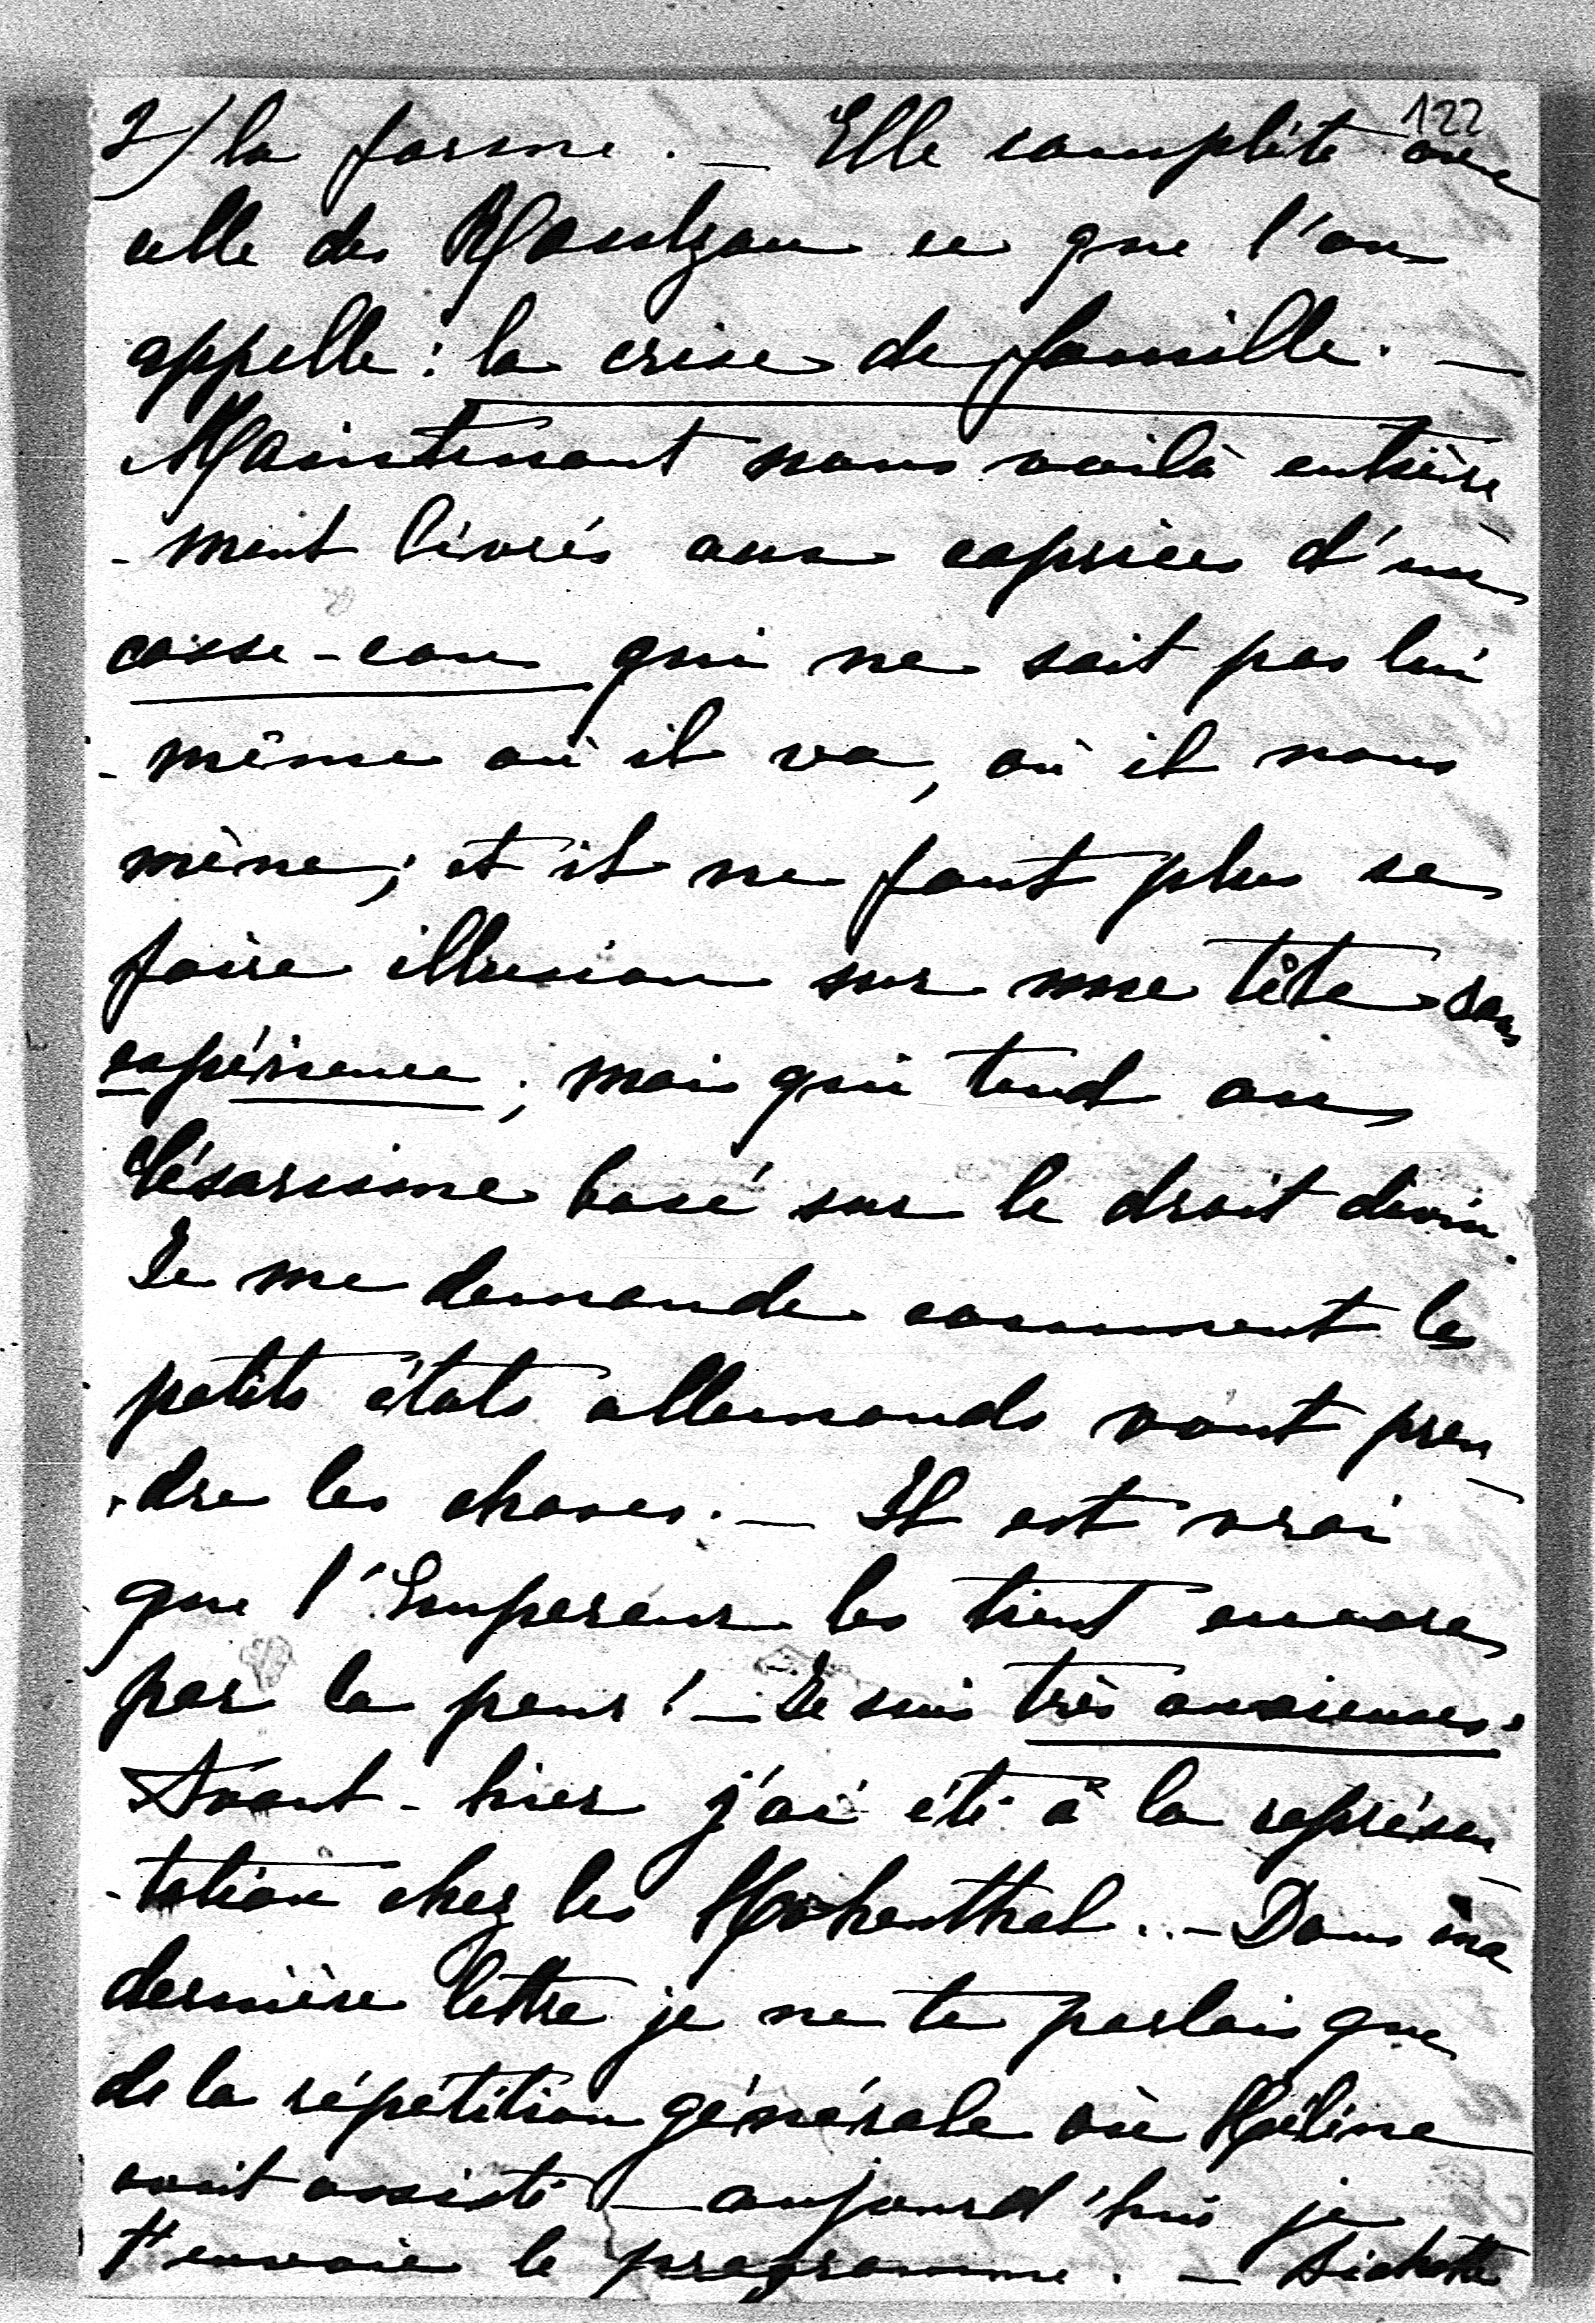 122
2/ la forme. — Elle complète avec
celle des Rantzau ce que l'on
appelle : la crise de famille. —
Maintenant nous voilà entière
-ment livrés aux caprices d'un
casse-cou qui ne sait pas lui
-même où il va, où il nous
mène ; et il ne faut plus se
faire illusion sur une tête sans
expérience ; mais qui tend au
Césarisme basé sur le droit divin.
Je me demande comment les
petits états allemands vont pren
-dre les choses. — Il est vrai
que l'Empereur les tient encore
par la peur ! — Je suis très anxieuse.
Avant-hier j'ai été à la représen
-tation chez les Hohenthal. — Dans ma
dernière lettre je ne te parlais que
de la répétition générale où Hélène
avait assisté — aujourd'hui je
t'envoie le programme. —